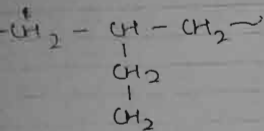 -CH2 - CH - CH2~
CH2
CH2